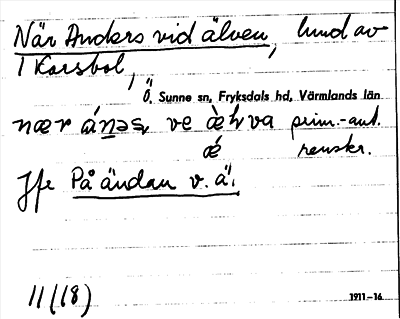 När Anders vid älven, lund av
1 Korsbol,
Ö. Sunne sn, Fryksdals hd, Värmlands län
nær ánəs, ve æ̀ɫva prim.-ant.
ǽ renskr.
Jfe På ändan v. ä.
11(18)
1911-16